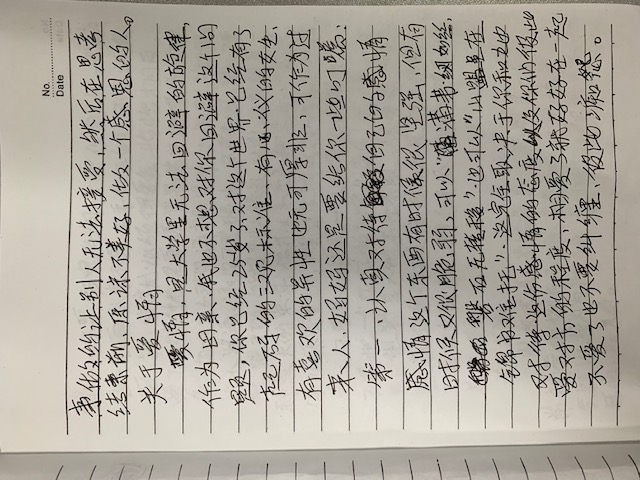 No.
Date
事做的让别人无法接受，然后在思考
结束前，原谅不美好，做一个感恩的人。
关于爱情
爱情，是大学里无法回避的旋律，
作为母亲，我也不想对你回避这个问
题，你已经25岁了，对这个世界已经有了
起码的三观标准，有心仪的女生、
有喜欢的异性也无可厚非，可作为过
来人，妈妈还是要给你一些叮嘱：
第一、认真对待自己的感情
感情这个东西有时候很坚强，但有
时候又很脆弱，可以“蒲苇韧如丝，
磐石无转移”，也可以“山盟虽在
锦书难托”，这完全取决于你和她
对待这份感情的态度以及你们彼此
爱对方的程度，相爱了就好好在一起
不爱了也不要纠缠、彼此痴怨。